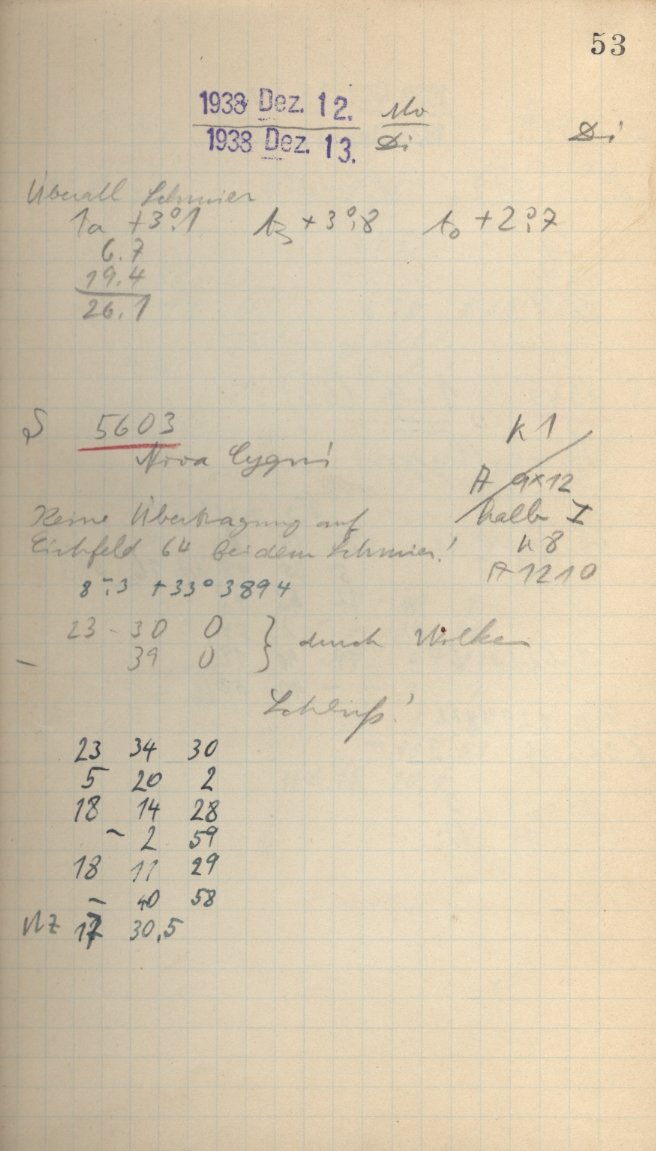 53
1938 Dez. 12. Mo
1938 Dez. 13. Di Di
Überall Schmier
ta +3°,1 t3 +3°,8 to +2°,7
6.7
19.4
26.1
S 5603 K 1
Nova Cygni
A 9x12
Keine Übertragung auf halb I
Eichfeld 64 bei dem Schmier! K 8
A 1210
8 : 3 +33° 3894
23 - 30 0
- 39 0 } durch Wolken
Schluß!
23 34 30
5 20 2
18 14 28
- 2 59
18 11 29
- 40 58
MZ 17 30,5